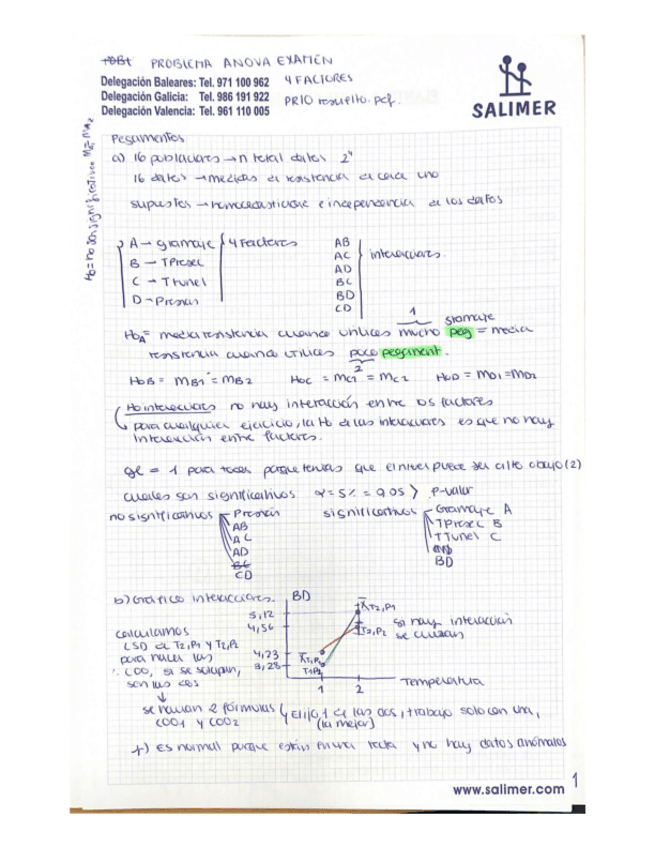 PROBLEMA ANOVA EXAMEN
Delegación Baleares: Tel. 971 100 962
4 FACTORES
Delegación Galicia: Tel. 986 191 922
PR10 resuelto.pdf
Delegación Valencia: Tel. 961 110 005
SALIMER
Ho = no son significativos
Pegamentos
a) 16 poblaciones → n total datos 2⁴
16 datos → medidas de resistencia de cada uno
supuestos → homocedasticidad e independencia de los datos
A → gramaje
4 Factores
B → TPresec
C → Ttunel
D → Presion
AB
AC
AD
BC
BD
CD
interacciones
1
gramaje
HoA = media resistencia cuando utilices mucho peg = media
resistencia cuando utilices poco pegament.
2
HoB = mB1 = mB2 HoC = mC1 = mC2 HoD = mD1 = mD2
Ho interacciones no hay interacción entre los factores
para cualquier ejercicio, la Ho de las interacciones es que no hay
interacción entre factores.
gl = 1 para todos porque tenias que el nivel puede ser alto o bajo (2)
cuales son significativos α = 5% = 0.05 > p-valor
no significativos
Presión
AB
AC
AD
BC
CD
significativos
Gramaje A
TPresec B
TTunel C
BD
b) Gráfico interacciones.
BD
5,12
4,56
4,23
3,28
X̄T2,P1
T2,P2
X̄T1,P1
T1P2
1 2
Temperatura
si hay interacción
se cruzan
calculamos
LSD de T2,P1 y T2,P2
para hacer las
LOO, si se solapan,
son las dos
se hallan 2 fórmulas
LOO1 y LOO2
y elijo 1 de las dos, trabajo solo con una,
(la mejor)
+) es normal porque están en una recta y no hay datos anómalos
www.salimer.com
1